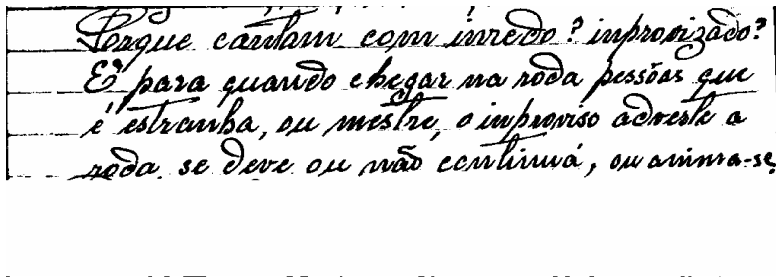 Porque cantam com inredo? inprovizado?
É para quando chegar na roda pessôas que
é estranha, ou mestre, o inproviso adverte a
roda se deve ou não continuá, ou anima-se,